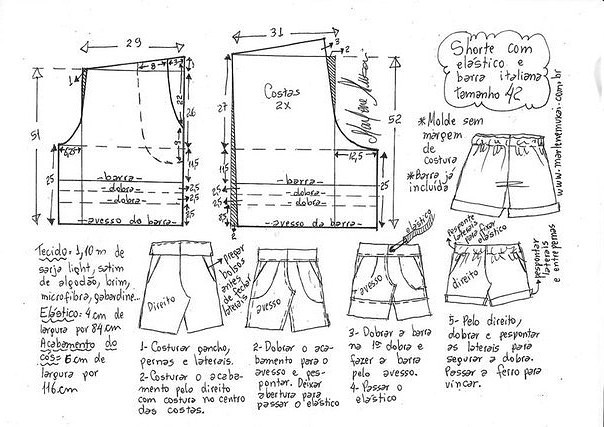 29
31
Shorte com
elástico e
barra italiana
tamanho 42
1
8
3
3
3
2
22
26
9
51
27
52
Costas
2X
Marlene Mukai
* Molde sem
margem
de
costura
* Barra já
incluída
www.marlenemukai.com.br
6,25
12,5
25
11,5
25
11,5
barra
dobra
dobra
avesso da barra
2,5
2,5
barra
dobra
dobra
avesso da barra
2,5
2,5
2
Tecido: 1,10 m de
sarja light, satim
de algodão, brim,
microfibra, gabardine...
Elástico: 4 cm de
largura por 84 cm
Acabamento do
cós: 6 cm de
largura por
116 cm
Direito
pregar
bolsos
antes
de fechar
laterais
avesso
elástico
avesso
Pesponte
laterais
para fixar
elástico
direito
pespontar
laterais
e entrepernas
1- Costurar gancho,
pernas e laterais.
2- Costurar o acaba-
mento pelo direito
com costura no centro
das costas.
2- Dobrar o aca-
bamento para o
avesso e pes-
pontar. Deixar
abertura para
passar o elástico
3- Dobrar a barra
na 1ª dobra e
fazer a barra
pelo avesso.
4- Passar o
elástico
5- Pelo direito,
dobrar e pespontar
as laterais para
segurar a dobra.
Passar a ferro para
vincar.